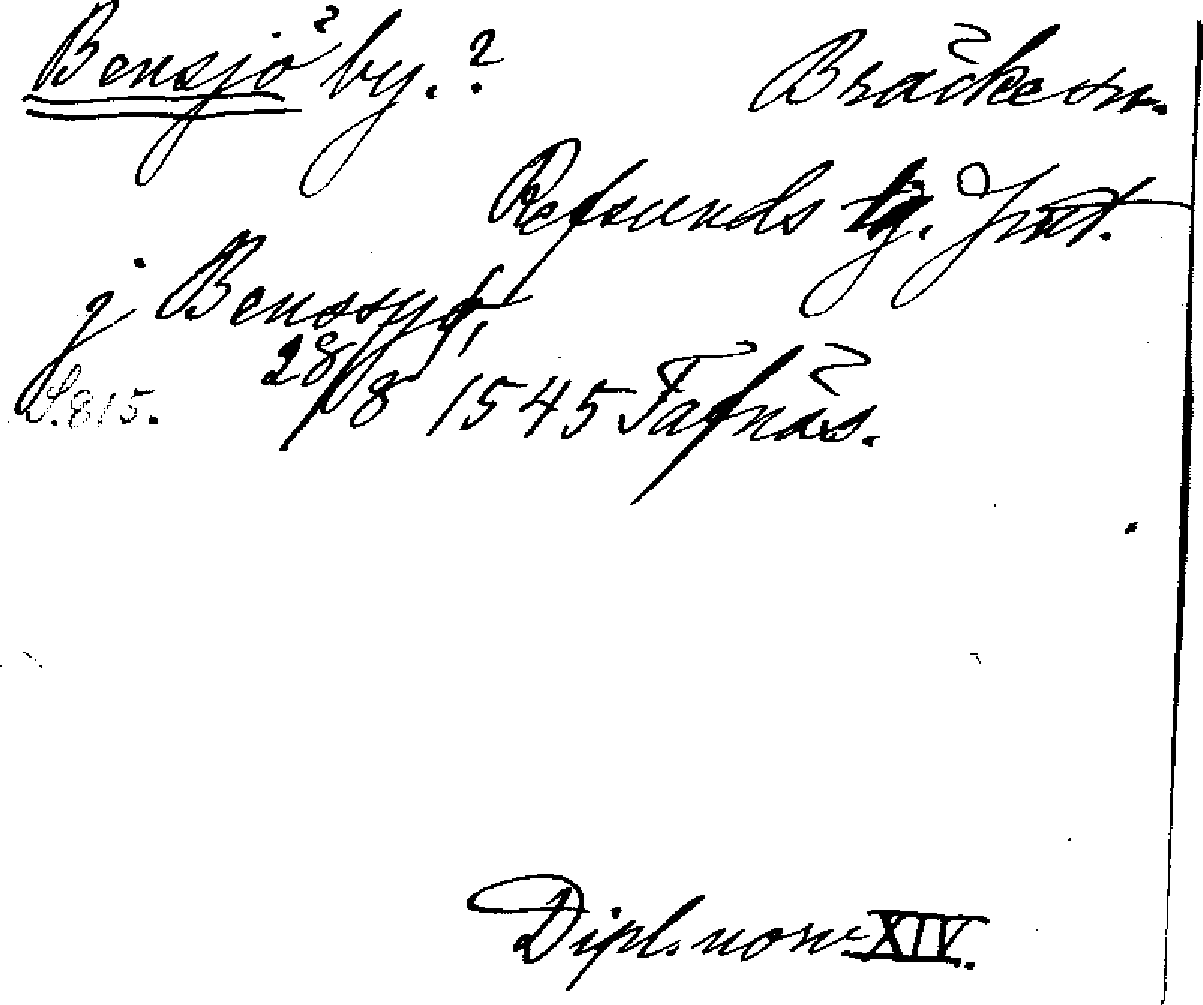 Bensjö by. ? Bräcke sn.
Refsunds tg. Jmt.
j Benssyö,
S. 815. 28/8 1545 Tafnäs.
Dipl. norv. XIV.